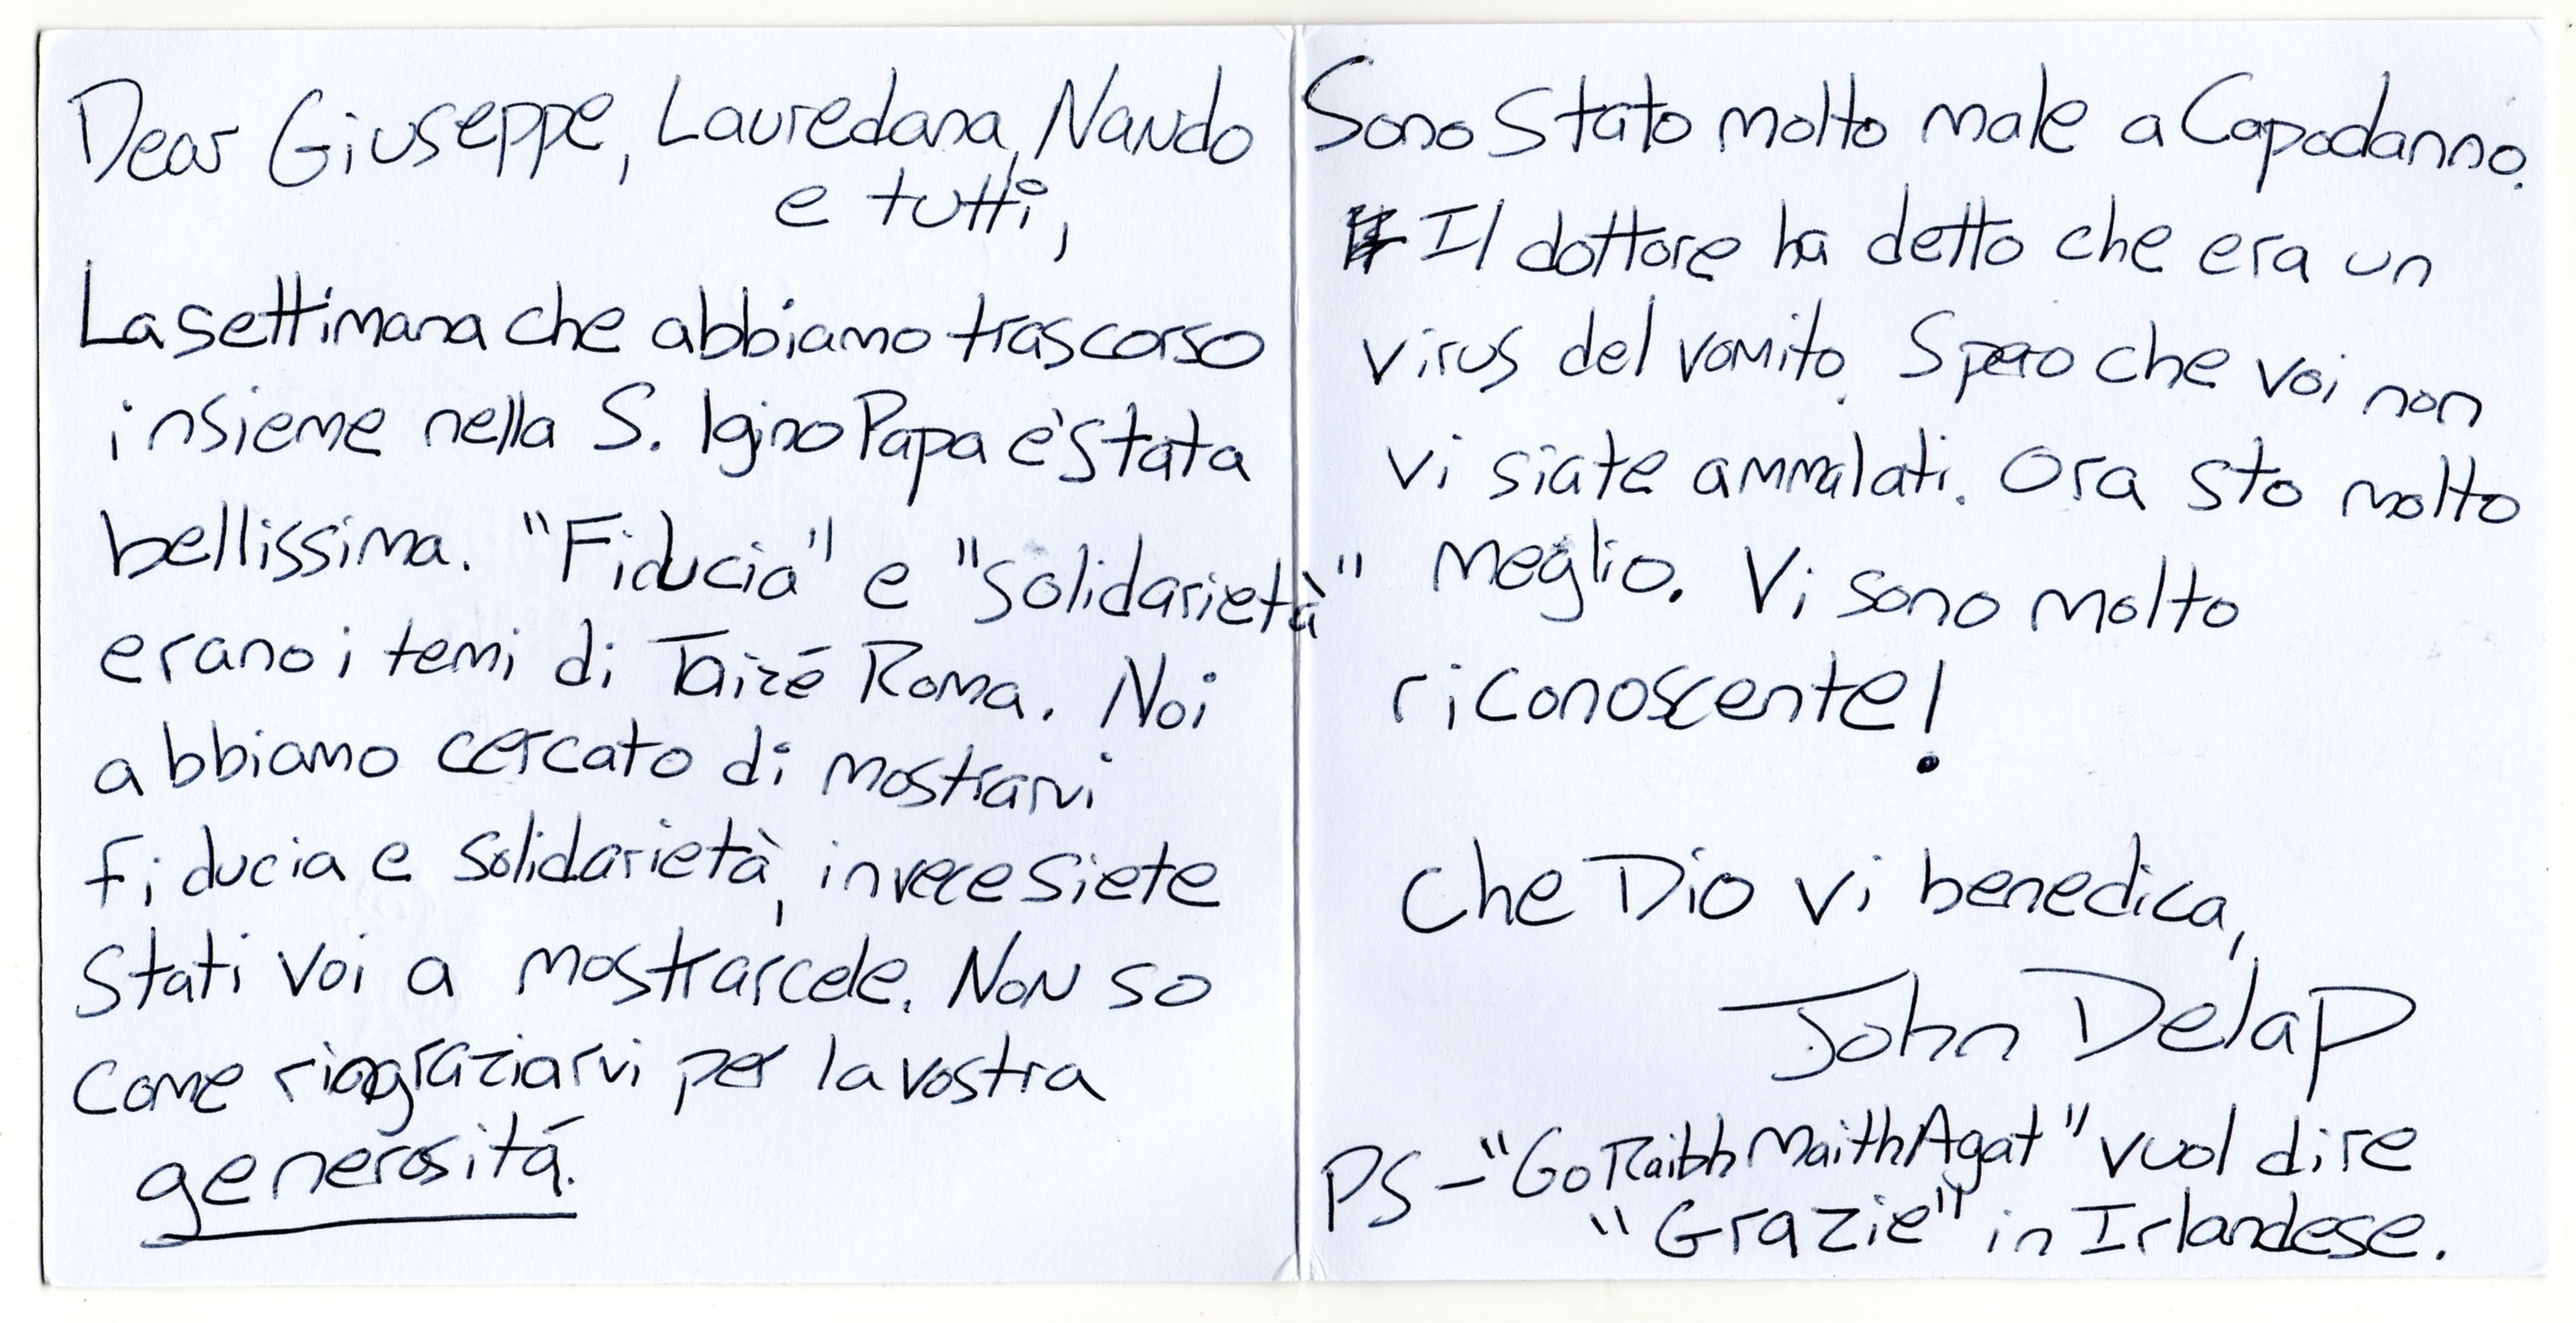 Dear Giuseppe, Lauredana, Nando
e tutti,
La settimana che abbiamo trascorso
insieme nella S. Igino Papa è stata
bellissima. "Fiducia" e "Solidarietà"
erano i temi di Taizé Roma. Noi
abbiamo cercato di mostrarvi
fiducia e solidarietà, invece siete
stati voi a mostrarcele. Non so
come ringraziarvi per la vostra
generositá.
Sono stato molto male a Capodanno.
Il dottore ha detto che era un
virus del vomito. Spero che voi non
vi siate ammalati. Ora sto molto
meglio. Vi sono molto
riconoscente!
Che Dio vi benedica,
John Delap
PS - "Go Raibh Maith Agat" vuol dire
"Grazie" in Irlandese.